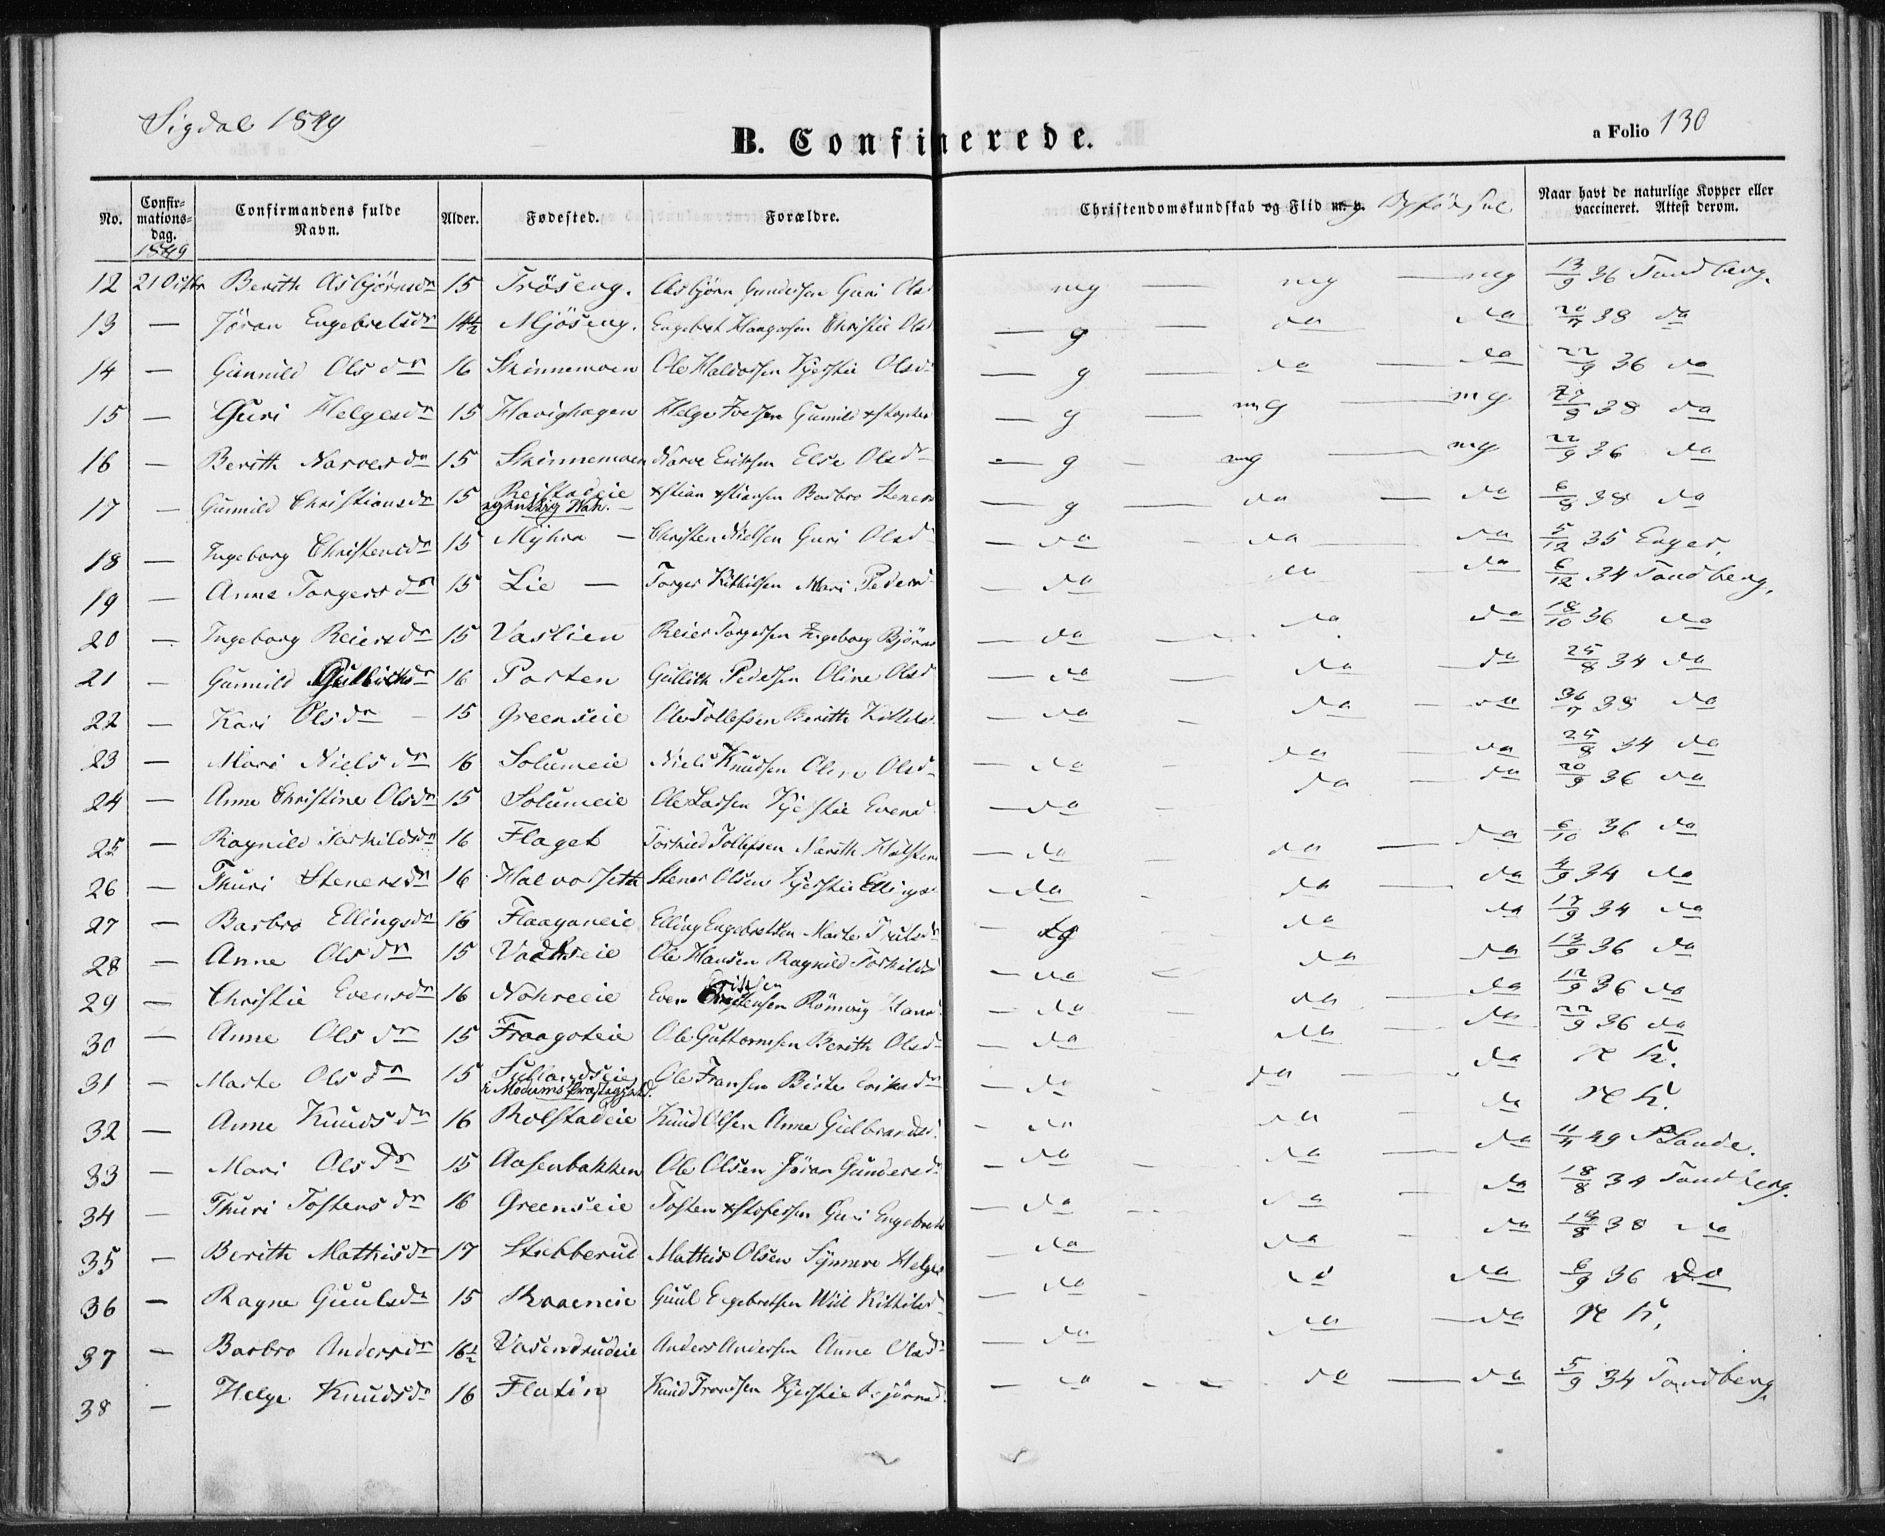 Sigdal 1849
B. Confirmerede.
a Folio 130
No. Confirmations-dag. Confirmandens fulde Navn. Alder. Fødested. Forældre. Christendomskundskab og Flid m. v. og Opførsel Naar havt de naturlige Kopper eller vaccineret. Attest derom.
1849
12 21 Berith Asbjørnsdr 15 Tröseng. Asbjörn Gundersen Guri Olsd mg — mg — mg 13/9 36 Tandberg.
13 — Jöran Engebretsdr 14½ Mjöseng. Engebret Haagensen Christie Olsd — g — do do 38 do
14 — Gunnild Olsdr 16 Skinnemoen Ole Halvorsen Kjerstie Olsd — g — do — do 22/9 36 do
15 — Guri Helgesdr 15 Havighagen Helge Iversen Gunnild — g — mg — mg 38 do
16 — Berith Narvesdr 15 Skinnemoen Narve Eriksen Else Olsdr — g — mg — mg 22/9 36 do
17 — Gunnild Christiansdr 15 Barbro Steners — g — do — do 6/8 38 do
18 — Ingeborg Christensdr 15 Myhra — Christen Nielsen Guri Olsd — do — do — do 5/12 35 Enger.
19 — Anne Torgersdr 15 Lie — Torger Kittilsen Mari Pedersd — do do — do 6/12 34 Tandberg.
20 — Ingeborg Reiersdr 15 Vaslien Reier Torgersen Ingeborg Björns — do — do do 18/10 36 do
21 — Gunnild Gulliksdr 16 Porten Gullik Pedersen Oline Olsd — do — do — do 25/8 34 do
22 — Kari Olsdr — 15 Greenseie Ole Tollefsen Berith Kittelsd — do — do — do 38 do
23 — Mari Nielsdr 16 Solumeie Niels Knudsen Olsd — do do — do 25/8 34 do
24 — Anne Christine Olsdr 15 Solumeie Ole Larsen Kjerstie Evensd — do — do — do 20/9 36 do
25 — Ragnild Torkildsdr 16 Flaget Torkild Tollefsen — do — do — do 6/10 36 do
26 — Thuri Stenersdr 16 Halvorseth Stener Olsen Kjerstie Ellingsd — do do — do 4/9 34 do
27 — Barbro Ellingsdr 16 Flaaganeie Elling Engebretsen Marte Trulsdr — do do 17/9 34 do
28 — Anne Olsdr 15 Ole Hansen Ragnild Torkildsd — do — do do 13/9 36 do
29 — Christie Evensdr 16 Nohreeie Even Eriksen Hansd — do do — do 12/9 36 do
30 — Anne Olsdr 15 Fraagoteie Ole Guttormsen Berith Olsd — do do — do 22/9 36 do
31 — Marte Olsdr 15 Sullandseie i Modums Præstegjeld. Ole Fransen Birte Eriksdr — do do — do N. K.
32 — Anne Knudsdr 16 Rolstadeie Knud Olsen Anne Gulbrandsd. — do do do N. K.
33 — Mari Olsdr 15 Aasenbakken Ole Olsen Jöran Gundersd — do — do — do 49
34 — Thuri Tostensdr 16 Greenseie Tosten Guri Engebretsd — do — do — do 18/8 34 Tandberg.
35 — Berith Mathisdr 17 Stubberud Mathis Olsen Synnøve Helges — do do — do 38 do
36 — Ragne Guulsdr 15 Guul Engebretsen Kittilsd — do — do do 6/9 36 do
37 — Barbro Andersdr 16½ Vasendrudeie Anders Andersen Anne Olsdr — do do — do N. K.
38 — Helge Knudsdr 16 Flatin Knud Trondsen Kjerstie Björnsd. — do — do — do 5/9 34 Tandberg